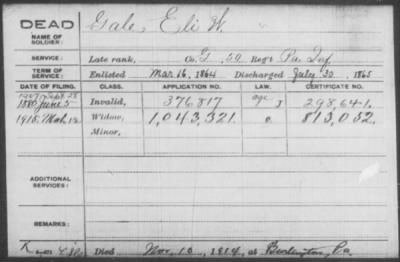 DEAD Gale, Eli W.
NAME OF SOLDIER:
SERVICE: Late rank, Co. G, 50 Reg't Pa. Inf.
TERM OF SERVICE: Enlisted Mar. 16, 1864 Discharged July 30, 1865
DATE OF FILING. CLASS. APPLICATION NO. LAW. CERTIFICATE NO.
1880 June 5 Invalid, 376,817 298,641.
1915. Mch. 12 Widow, 1,043,321. 813,052.
Minor,
ADDITIONAL SERVICES:
REMARKS:
Died Nov. 10, 1914, at Burlington, Pa.